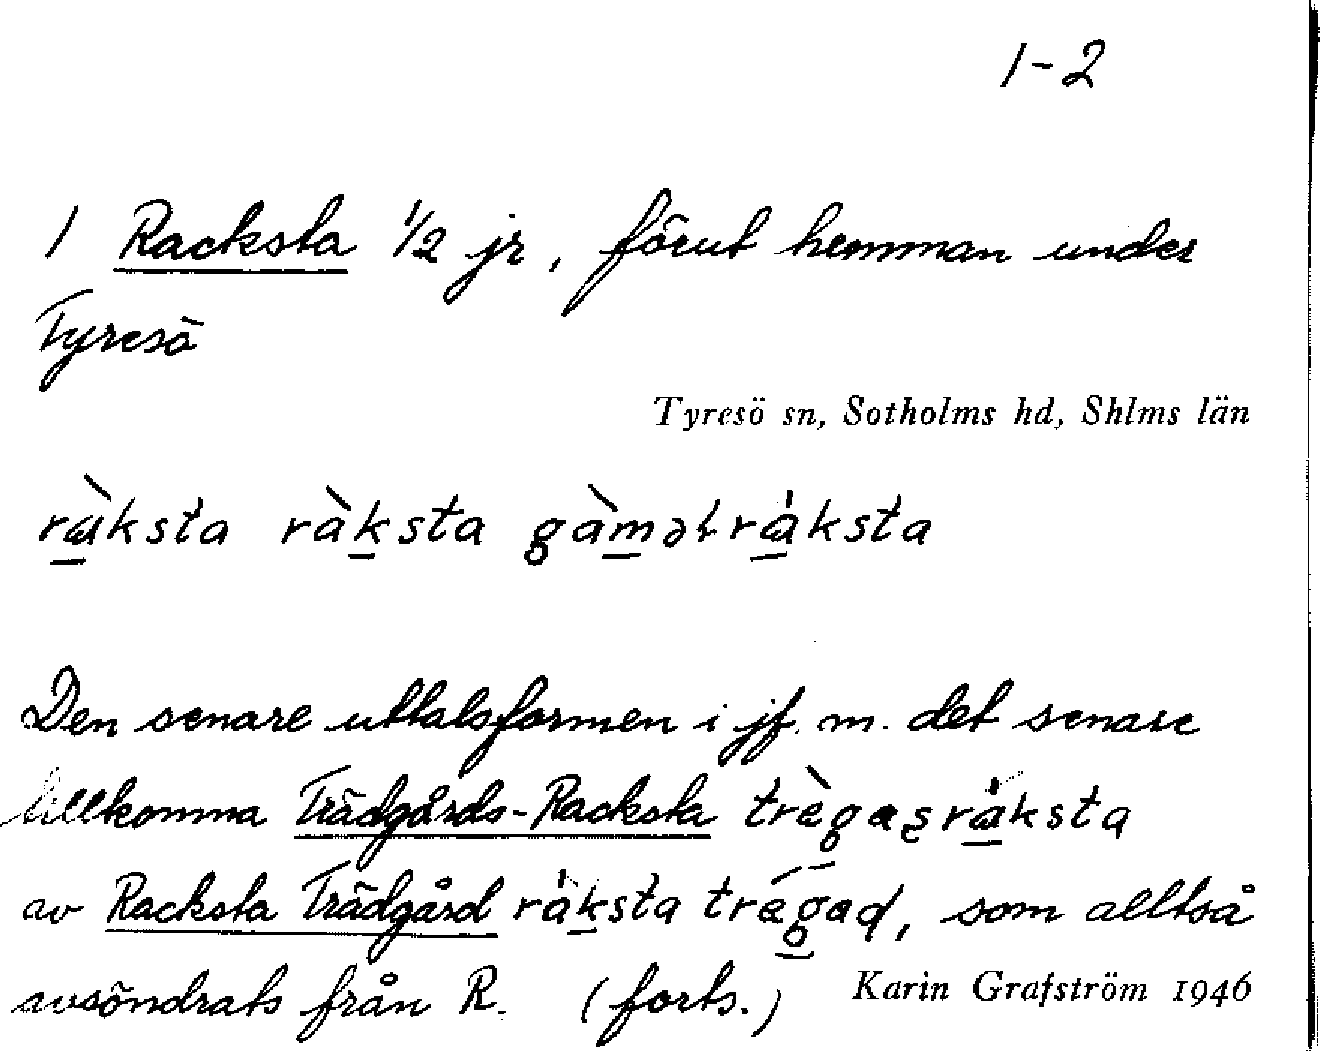 1-2
1 Racksta 1/2 jr, förut hemman under
Tyresö
Tyresö sn, Sotholms hd, Shlms län
ràksta ràksta gàməɫráksta
Den senare uttalsformen i jf. m. det senare
tillkomna Trädgårds-Racksta trègaʂráksta
av Racksta Trädgård ráksta trégaɖ, som alltså
avsöndrats från R. (forts.) Karin Grafström 1946